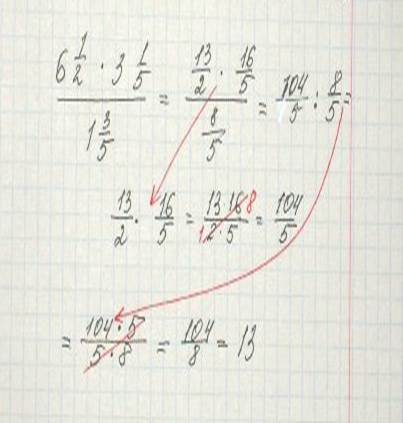 (6 1/2 · 3 1/5)/(1 3/5) = (13/2 · 16/5)/(8/5) = 104/5 : 8/5 =
13/2 · 16/5 = (13 16 8)/(1 2 · 5) = 104/5
= (104 · 5)/(5 · 8) = 104/8 = 13